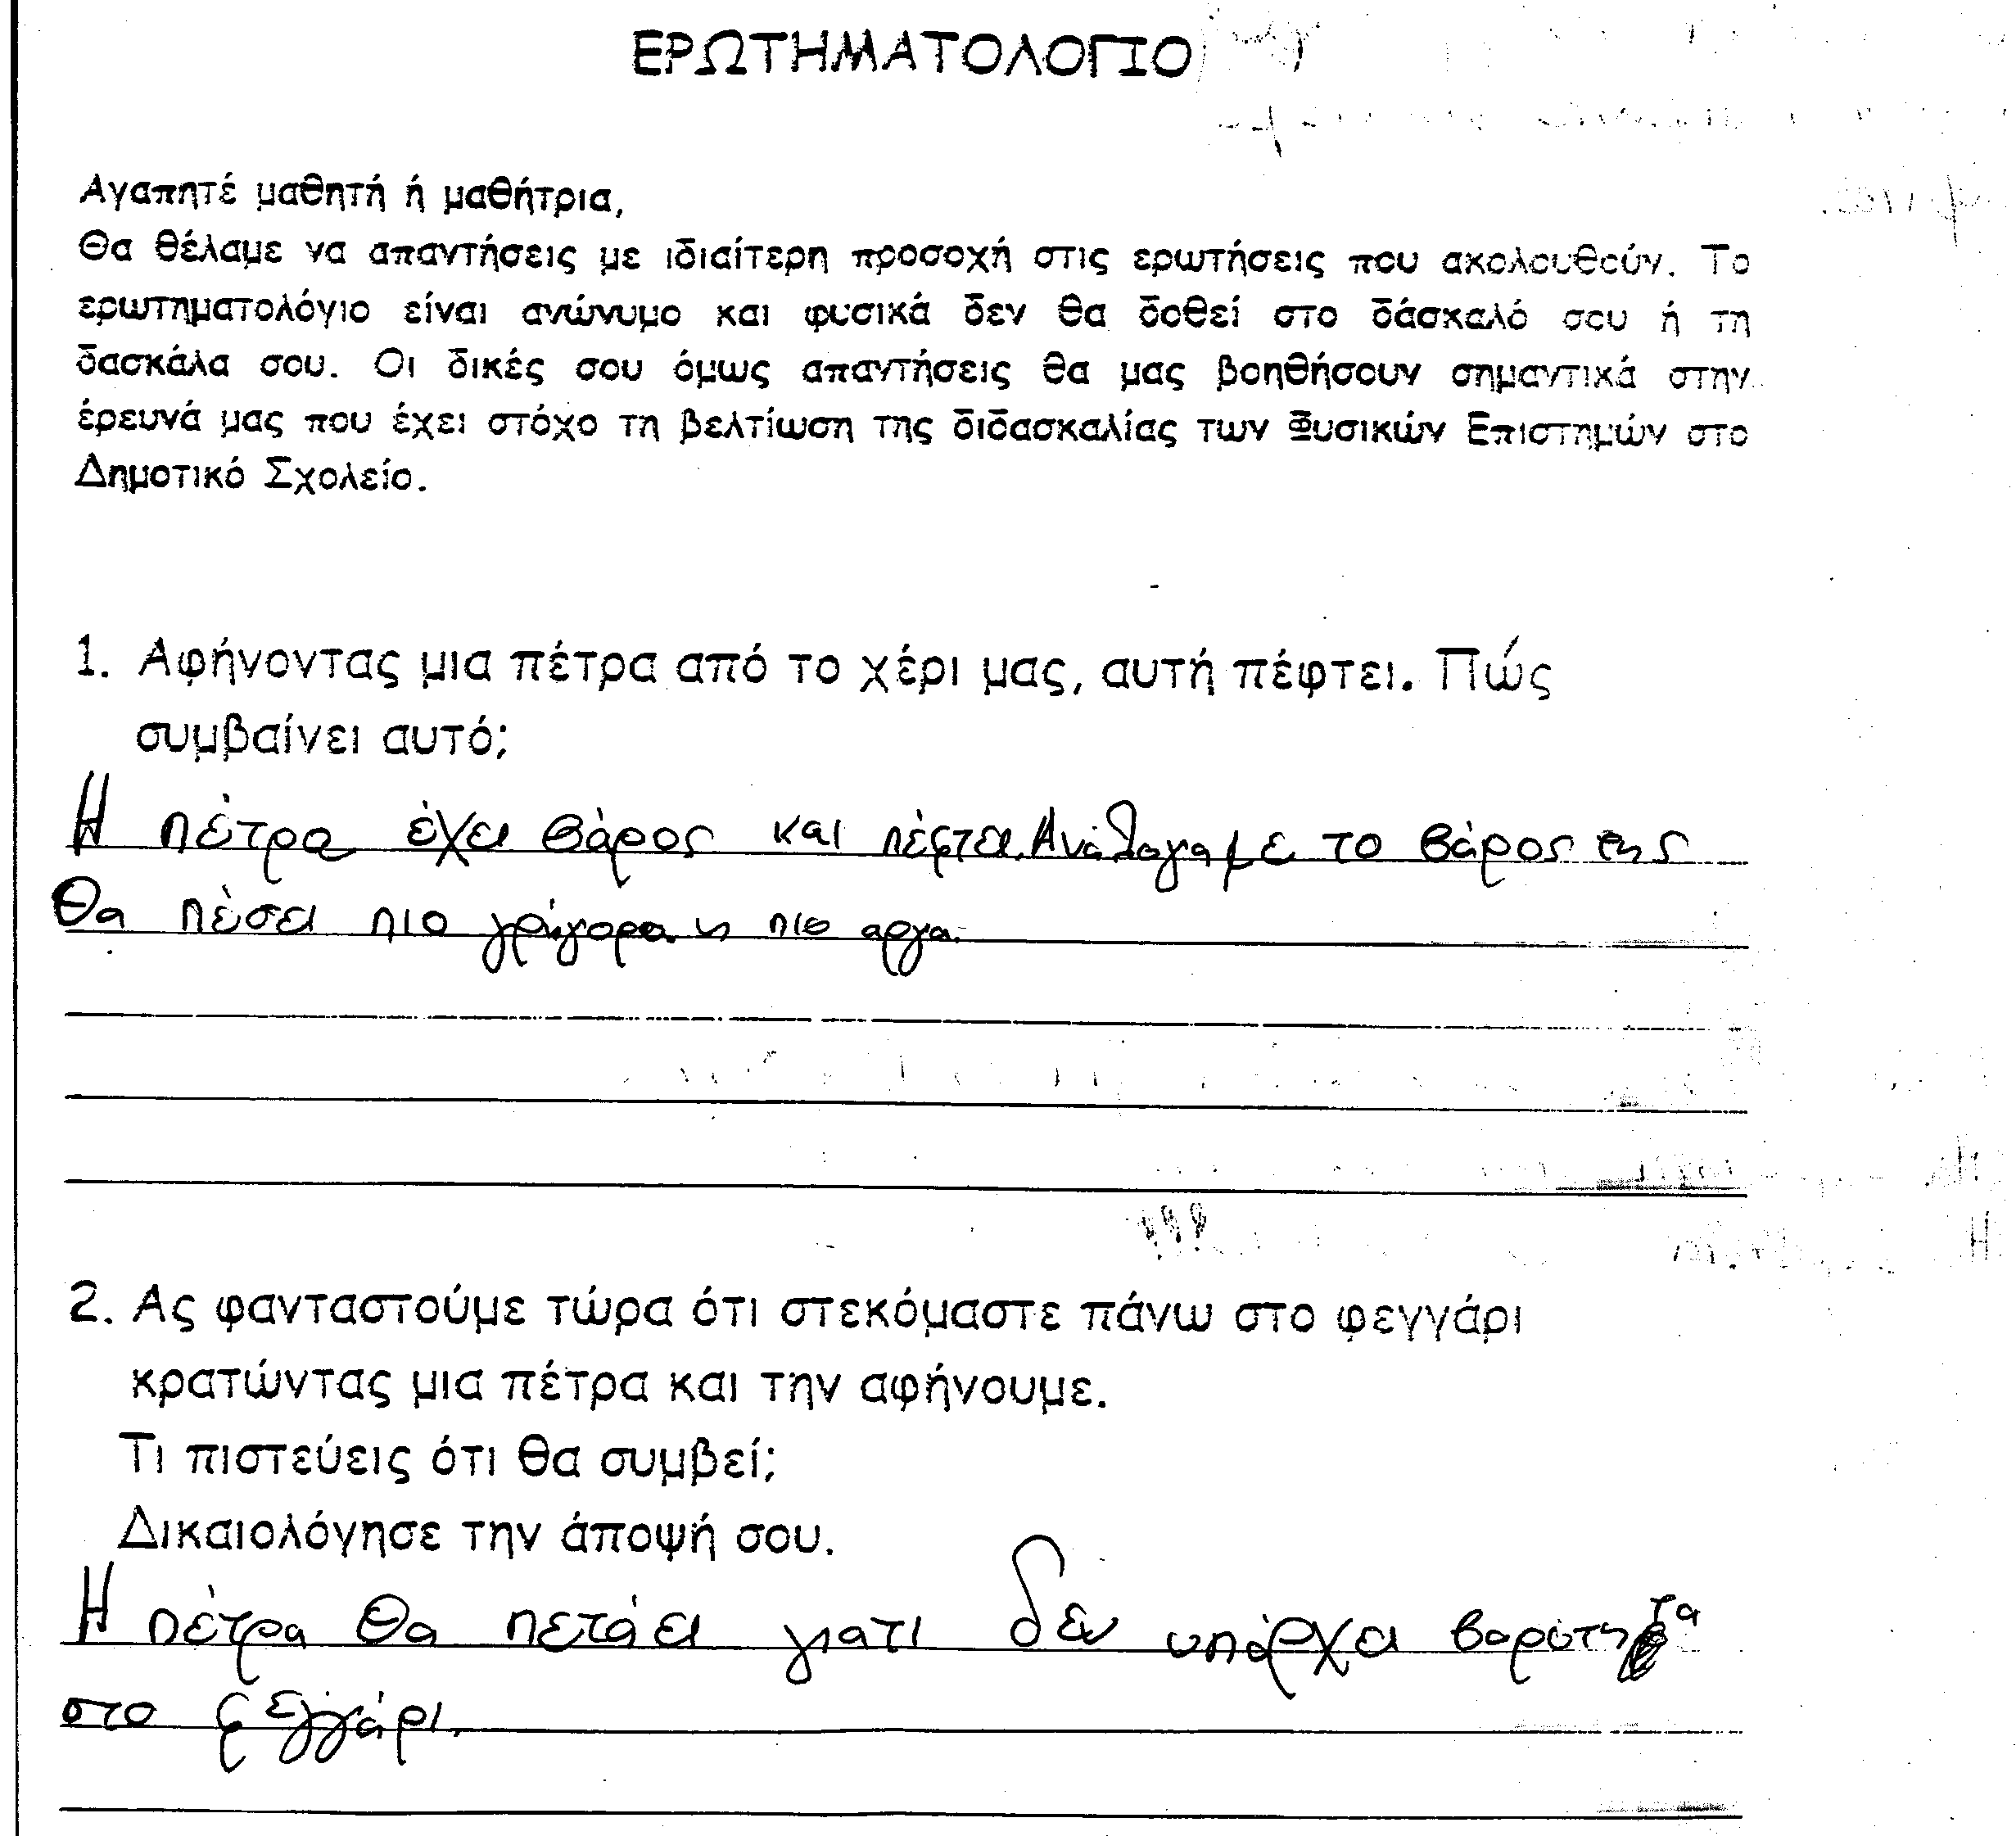 ΕΡΩΤΗΜΑΤΟΛΟΓΙΟ
Αγαπητέ μαθητή ή μαθήτρια,
Θα θέλαμε να απαντήσεις με ιδιαίτερη προσοχή στις ερωτήσεις που ακολουθούν. Το
ερωτηματολόγιο είναι ανώνυμο και φυσικά δεν θα δοθεί στο δάσκαλό σου ή τη
δασκάλα σου. Οι δικές σου όμως απαντήσεις θα μας βοηθήσουν σημαντικά στην
έρευνά μας που έχει στόχο τη βελτίωση της διδασκαλίας των Φυσικών Επιστημών στο
Δημοτικό Σχολείο.
1. Αφήνοντας μια πέτρα από το χέρι μας, αυτή πέφτει. Πώς
συμβαίνει αυτό;
Η πέτρα έχει βάρος και πέφτει. Ανάλογα με το βάρος της
θα πέσει πιο γρήγορα η πιο αργα.
2. Ας φανταστούμε τώρα ότι στεκόμαστε πάνω στο φεγγάρι
κρατώντας μια πέτρα και την αφήνουμε.
Τι πιστεύεις ότι θα συμβεί;
Δικαιολόγησε την άποψή σου.
Η πέτρα θα πετάει γιατι δεν υπάρχει βαρύτητα
στο φεγγάρι.